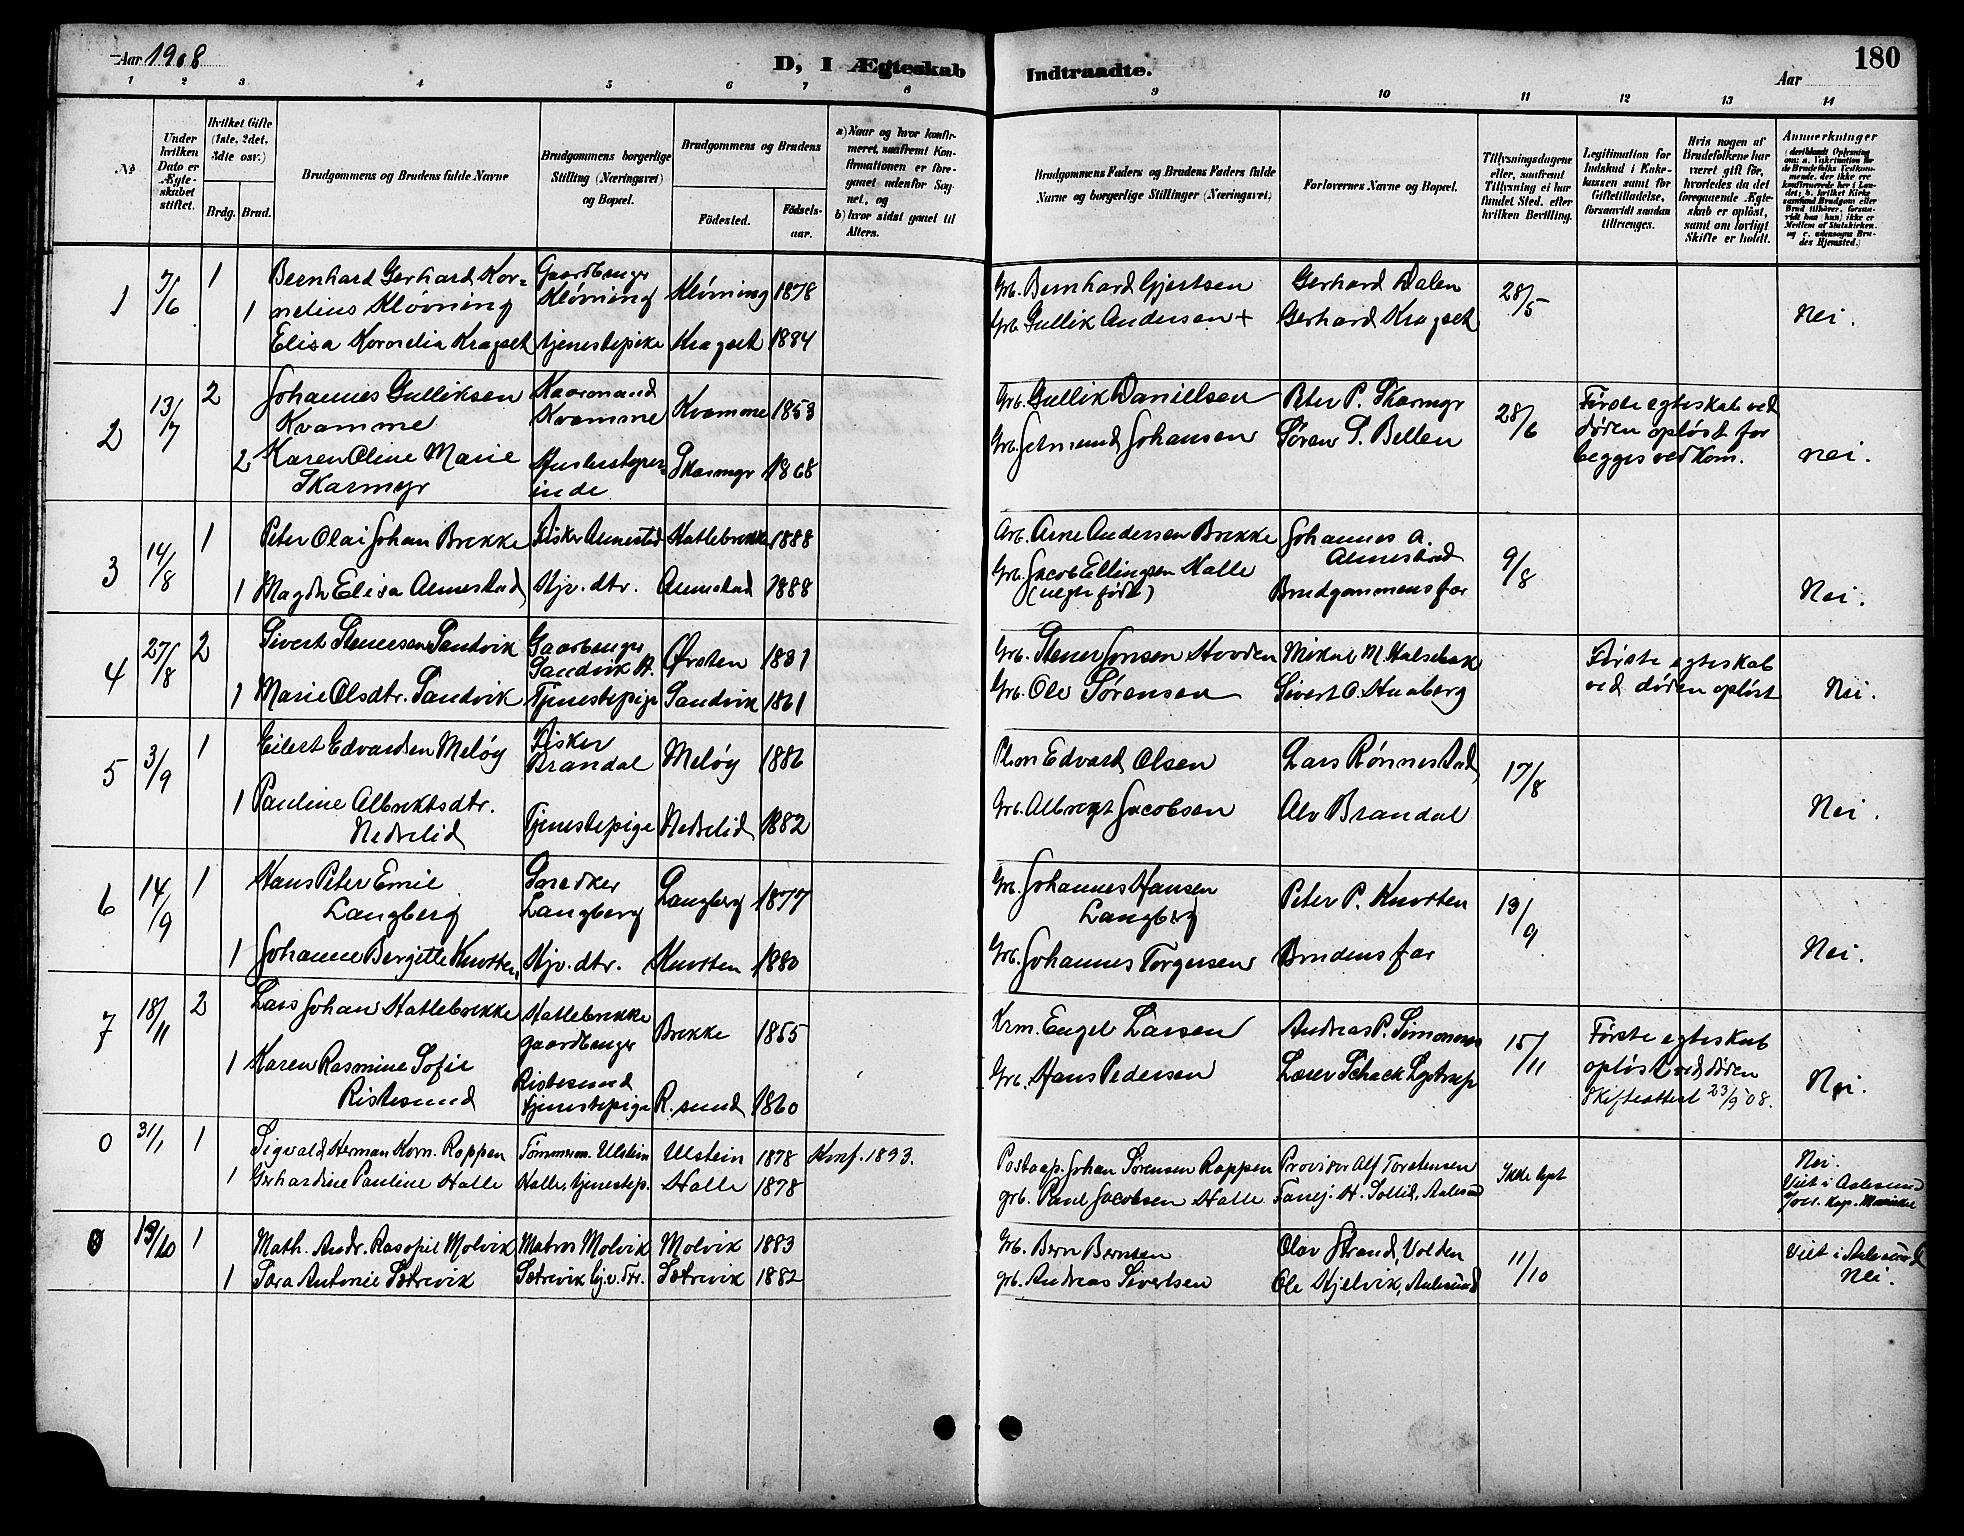 Aar 1908
D, I Ægteskab Indtraadte.
Aar
180
1 2 3 4 5 6 7 8 9 10 11 12 13 14
No
Under hvilken Dato er Ægteskabet stiftet.
Hvilket Gifte (1ste, 2det, 3die osv.)
Brdg. Brud.
Brudgommens og Brudens fulde Navne
Brudgommens borgerlige Stilling (Næringsvei) og Bopæl.
Brudgommens og Brudens
Födested.
Födselsaar.
a) Naar og hvor konfirmeret, saafremt Konfirmationen er foregaaet udenfor Sognet, og
b) hvor sidst gaaet til Alters.
Brudgommens Faders og Brudens Faders fulde Navne og borgerlige Stillinger (Næringsvei).
Forlovernes Navne og Bopæl.
Tillysningsdagene eller, saafremt Tillysning ei har fundet Sted, efter hvilken Bevilling.
Legitimation for Indskud i Enkekassen samt for Giftetilladelse, forsaavidt saadan tiltrænges.
Hvis nogen af Brudefolkene har været gift før, hvorledes da det foregaaende Ægteskab er opløst, samt om lovligt Skifte er holdt.
Anmerkninger
1 7/6 1 Bernhard Gerhard Kor= Gaardbruger Bernhard Gjertsen Gerhard Dalen 28/5
1 nelius Kløvning Kløvning Kløvning 1878 Nei.
Elisa Kornelia Kragset tjenestepike Kragset 1884 Grb. Gullik Andersen + Gerhard Kragset
2 13/7 2 Johannes Gulliksen Kaarmand Grb. Gullik Danielsen Peter P. Skarmyr 28/6 Første egteskab ved
Kvamme Kvamme Kvamme 1853 døden opløst for
2 Karen Oline Marie Skarmyr 1868 Johansen Søren S. begges vedkom. nei.
Skarmyr inde
3 14/8 1 Peter Olai Johan Brekke Fisker Almestad Hatlebrekke 1888 Arne Andersen Brekke Johannes A. 9/8
Almestad
1 Elisa Almestad Gjv. dtr. Almestad 1888 Grb. Jacob Ellingsen Halle Brudgommens far Nei.
(uegte født)
4 27/8 2 Sivert Stenersen Sandvik Gaarbruger Ørsten 1831 Grb. Stener Jonsen Hovden Første egteskab
Sandvik
1 Marie Olsdtr. Sandvik Tjenestepige Sandvik 1861 Grb. Ole Sørensen Sivert O. ved døden opløst Nei.
5 3/9 1 Eilert Edvardsen Meløy Fisker Meløy 1886 Edvard Olsen Lars Rønnestad 17/8
Brandal
1 Pauline Albriktsdtr. Tjenestepige Nedrelid 1882 Grb. Albregt Jacobsen Alv Brandal Nei.
Nedrelid
6 14/9 1 Hans Peter Emil Langberg 1877 Grb. Johannes Hansen Peter P. Knotten 13/9
Langberg Langberg Langberg
1 Johanne Bergitte Knotten Gjv. dtr. Knotten 1880 Grb. Johannes Torgersen Brudens far Nei.
7 18/11 2 Lars Johan Hatlebrekke Hatlebrekke Brekke 1855 Krm. Engel Larsen Andreas P. Simonnes 15/11 Første egteskab
gaardbruger
1 Karen Rasmine Sofie Ristesund R. sund 1860 Grb. Hans Pedersen Lærer Schack Lystrup opløst ved døden Nei.
Ristesund tjenestepige Skifteattest 23/9 08.
0 31/1 1 Sigvald Herman Korn. Roppen Tømmerm. Ulstein Ulstein 1878 Konf. 1893. Postaap. Johan Sørensen Roppen Provisor Alf Torstensen Ikke lyst Nei.
1 Gerhardine Pauline Halle Halle, tjenestep. Halle 1878 grb. Paul Jacobsen Halle Aalesund Viet i Aalesund
0 19/10 1 Math. Andr. Rasopil Molvik Matros Molvik Molvik 1883 Grb. Bern Berntsen Olav Strand, Volden 11/10 Viet i Aalesund
1 Sara Antonie Sætrevik Sætrevik Gjv. dtr. Sætrevik 1882 grb. Andreas Sivertsen Ole Hjelvik, Aalesund Nei.